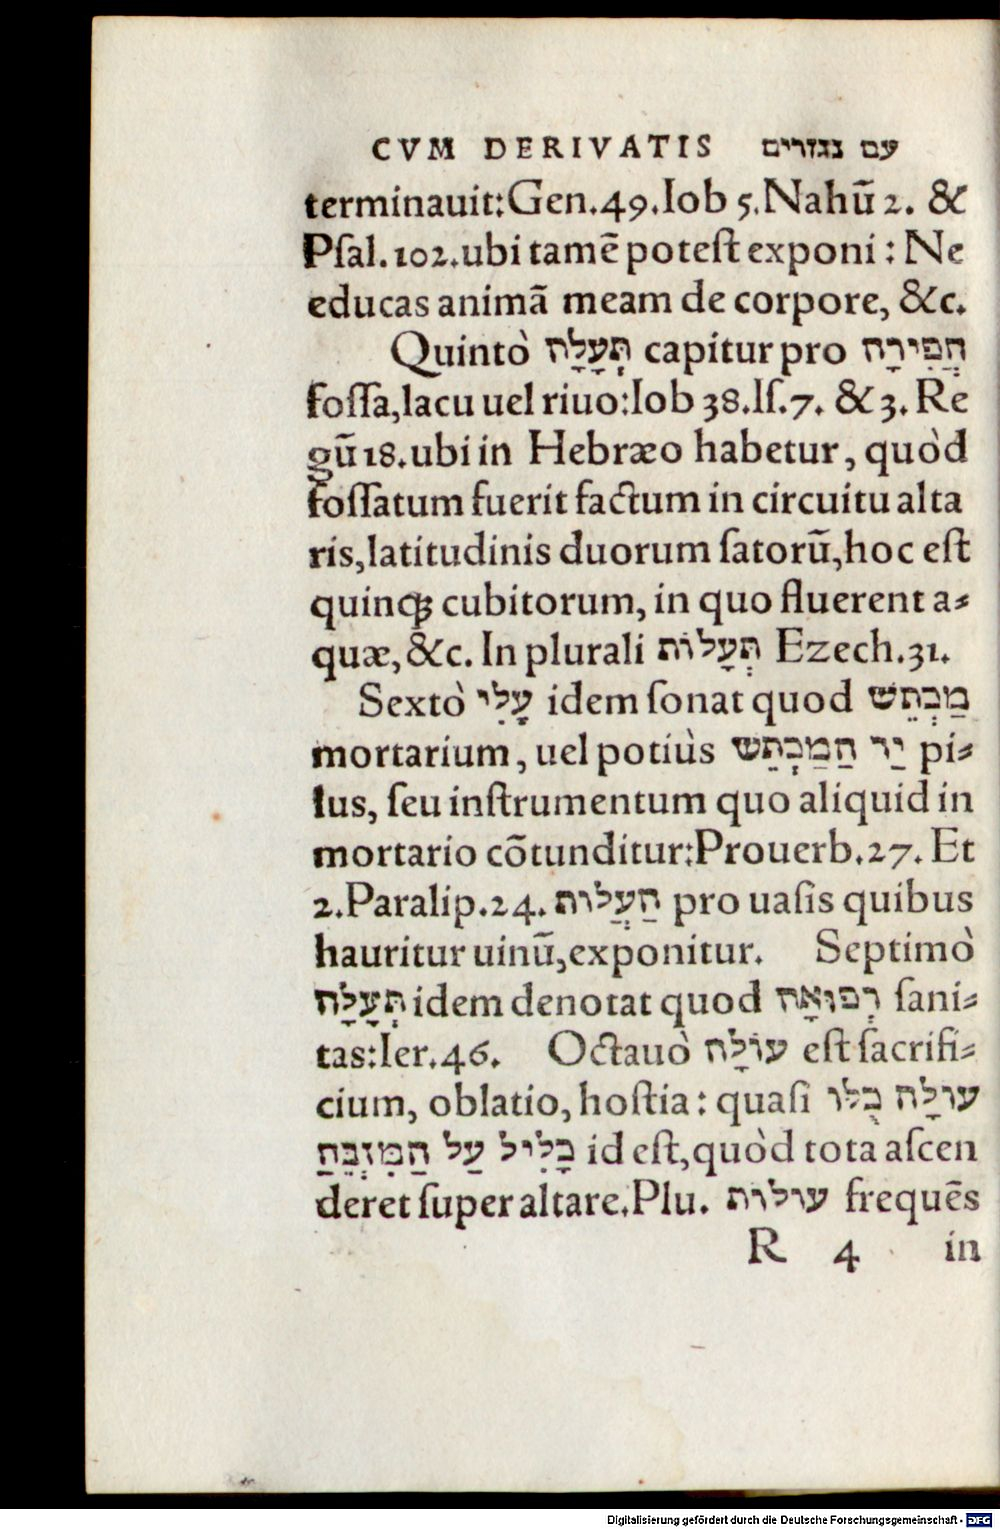 CVM DERIVATIS עם נגזרים
terminauit:Gen.49.Iob 5.Nahũ 2. &
Pſal.102.ubi tamẽ poteſt exponi : Ne
educas animã meam de corpore, &c.
Quintò תְּעָלָה capitur pro חֲפִירָה
foſſa,lacu uel riuo:Iob 38.Iſ.7. & 3. Re
gũ 18.ubi in Hebræo habetur, quòd
foſſatum fuerit factum in circuitu alta
ris,latitudinis duorum ſatorũ,hoc eſt
quinq; cubitorum, in quo fluerent a⸗
quæ,&c. In plurali תְּעָלוֹת Ezech.31.
Sextò עֱלִי idem ſonat quod מַכְתֵּשׁ
mortarium, uel potiùs יַד הַמַּכְתֵּשׁ pi⸗
lus, ſeu inſtrumentum quo aliquid in
mortario cõtunditur:Prouerb.27. Et
2.Paralip.24. הַעֲלוֹת pro uaſis quibus
hauritur uinũ,exponitur. Septimò
תְּעָלָה idem denotat quod רְפוּאָה ſani⸗
tas:Ier.46. Octauò עוֹלָה eſt ſacrifi⸗
cium, oblatio, hoſtia : quaſi עוֹלָה כֻּלּוֹ
כָּלִיל עַל הַמִּזְבֵּחַ id eſt,quòd tota aſcen
deret ſuper altare.Plu. עוֹלוֹת frequẽs
R 4 in
Digitalisierung gefördert durch die Deutsche Forschungsgemeinschaft - DFG